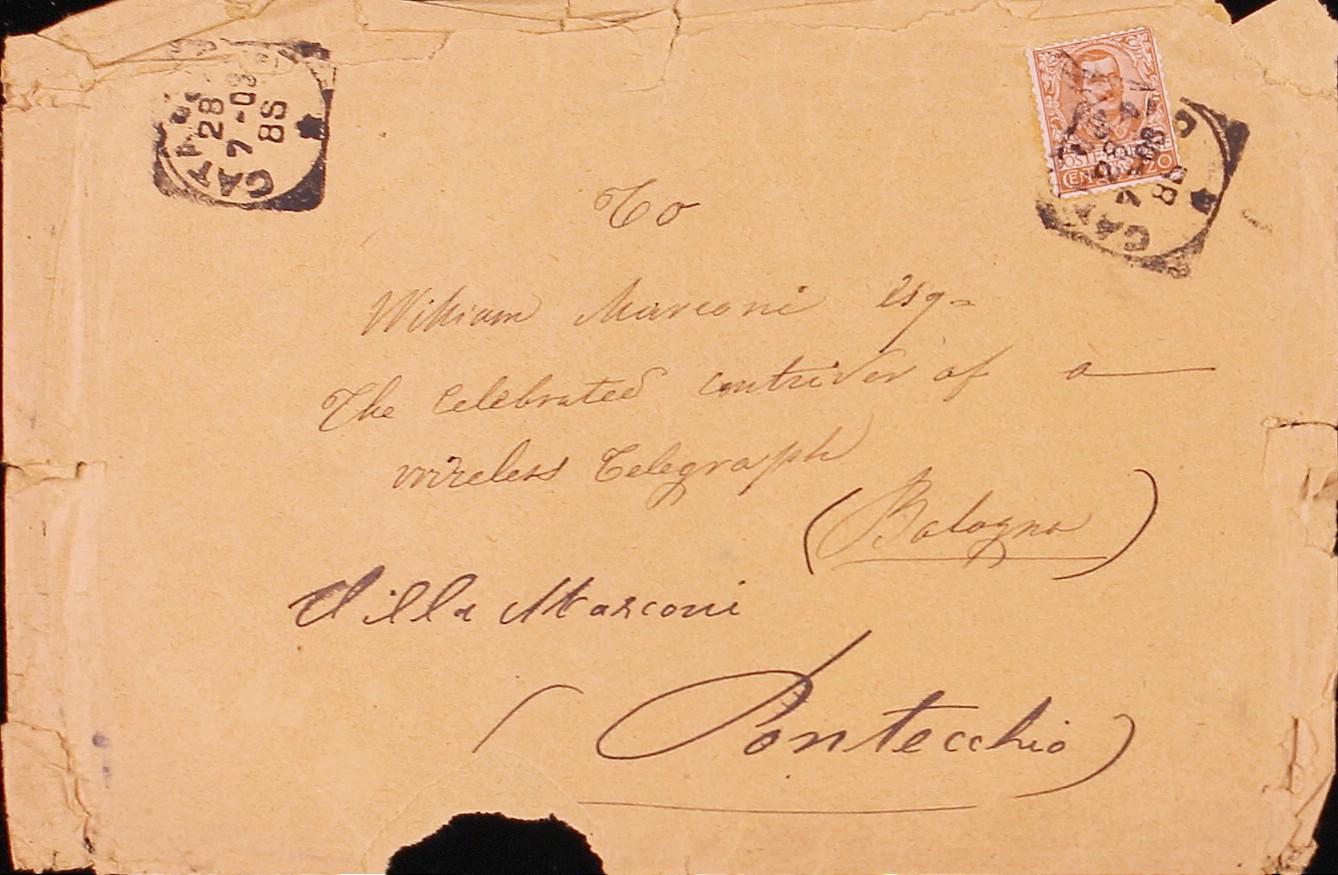 28
7-03
8S
POSTE ITALIANE
CENT. 20
28
7
03
8S
To
William Marconi Esq-
The Celebrated contriver of a
wireless Telegraph
(Bologna)
Villa Marconi
(Pontecchio)